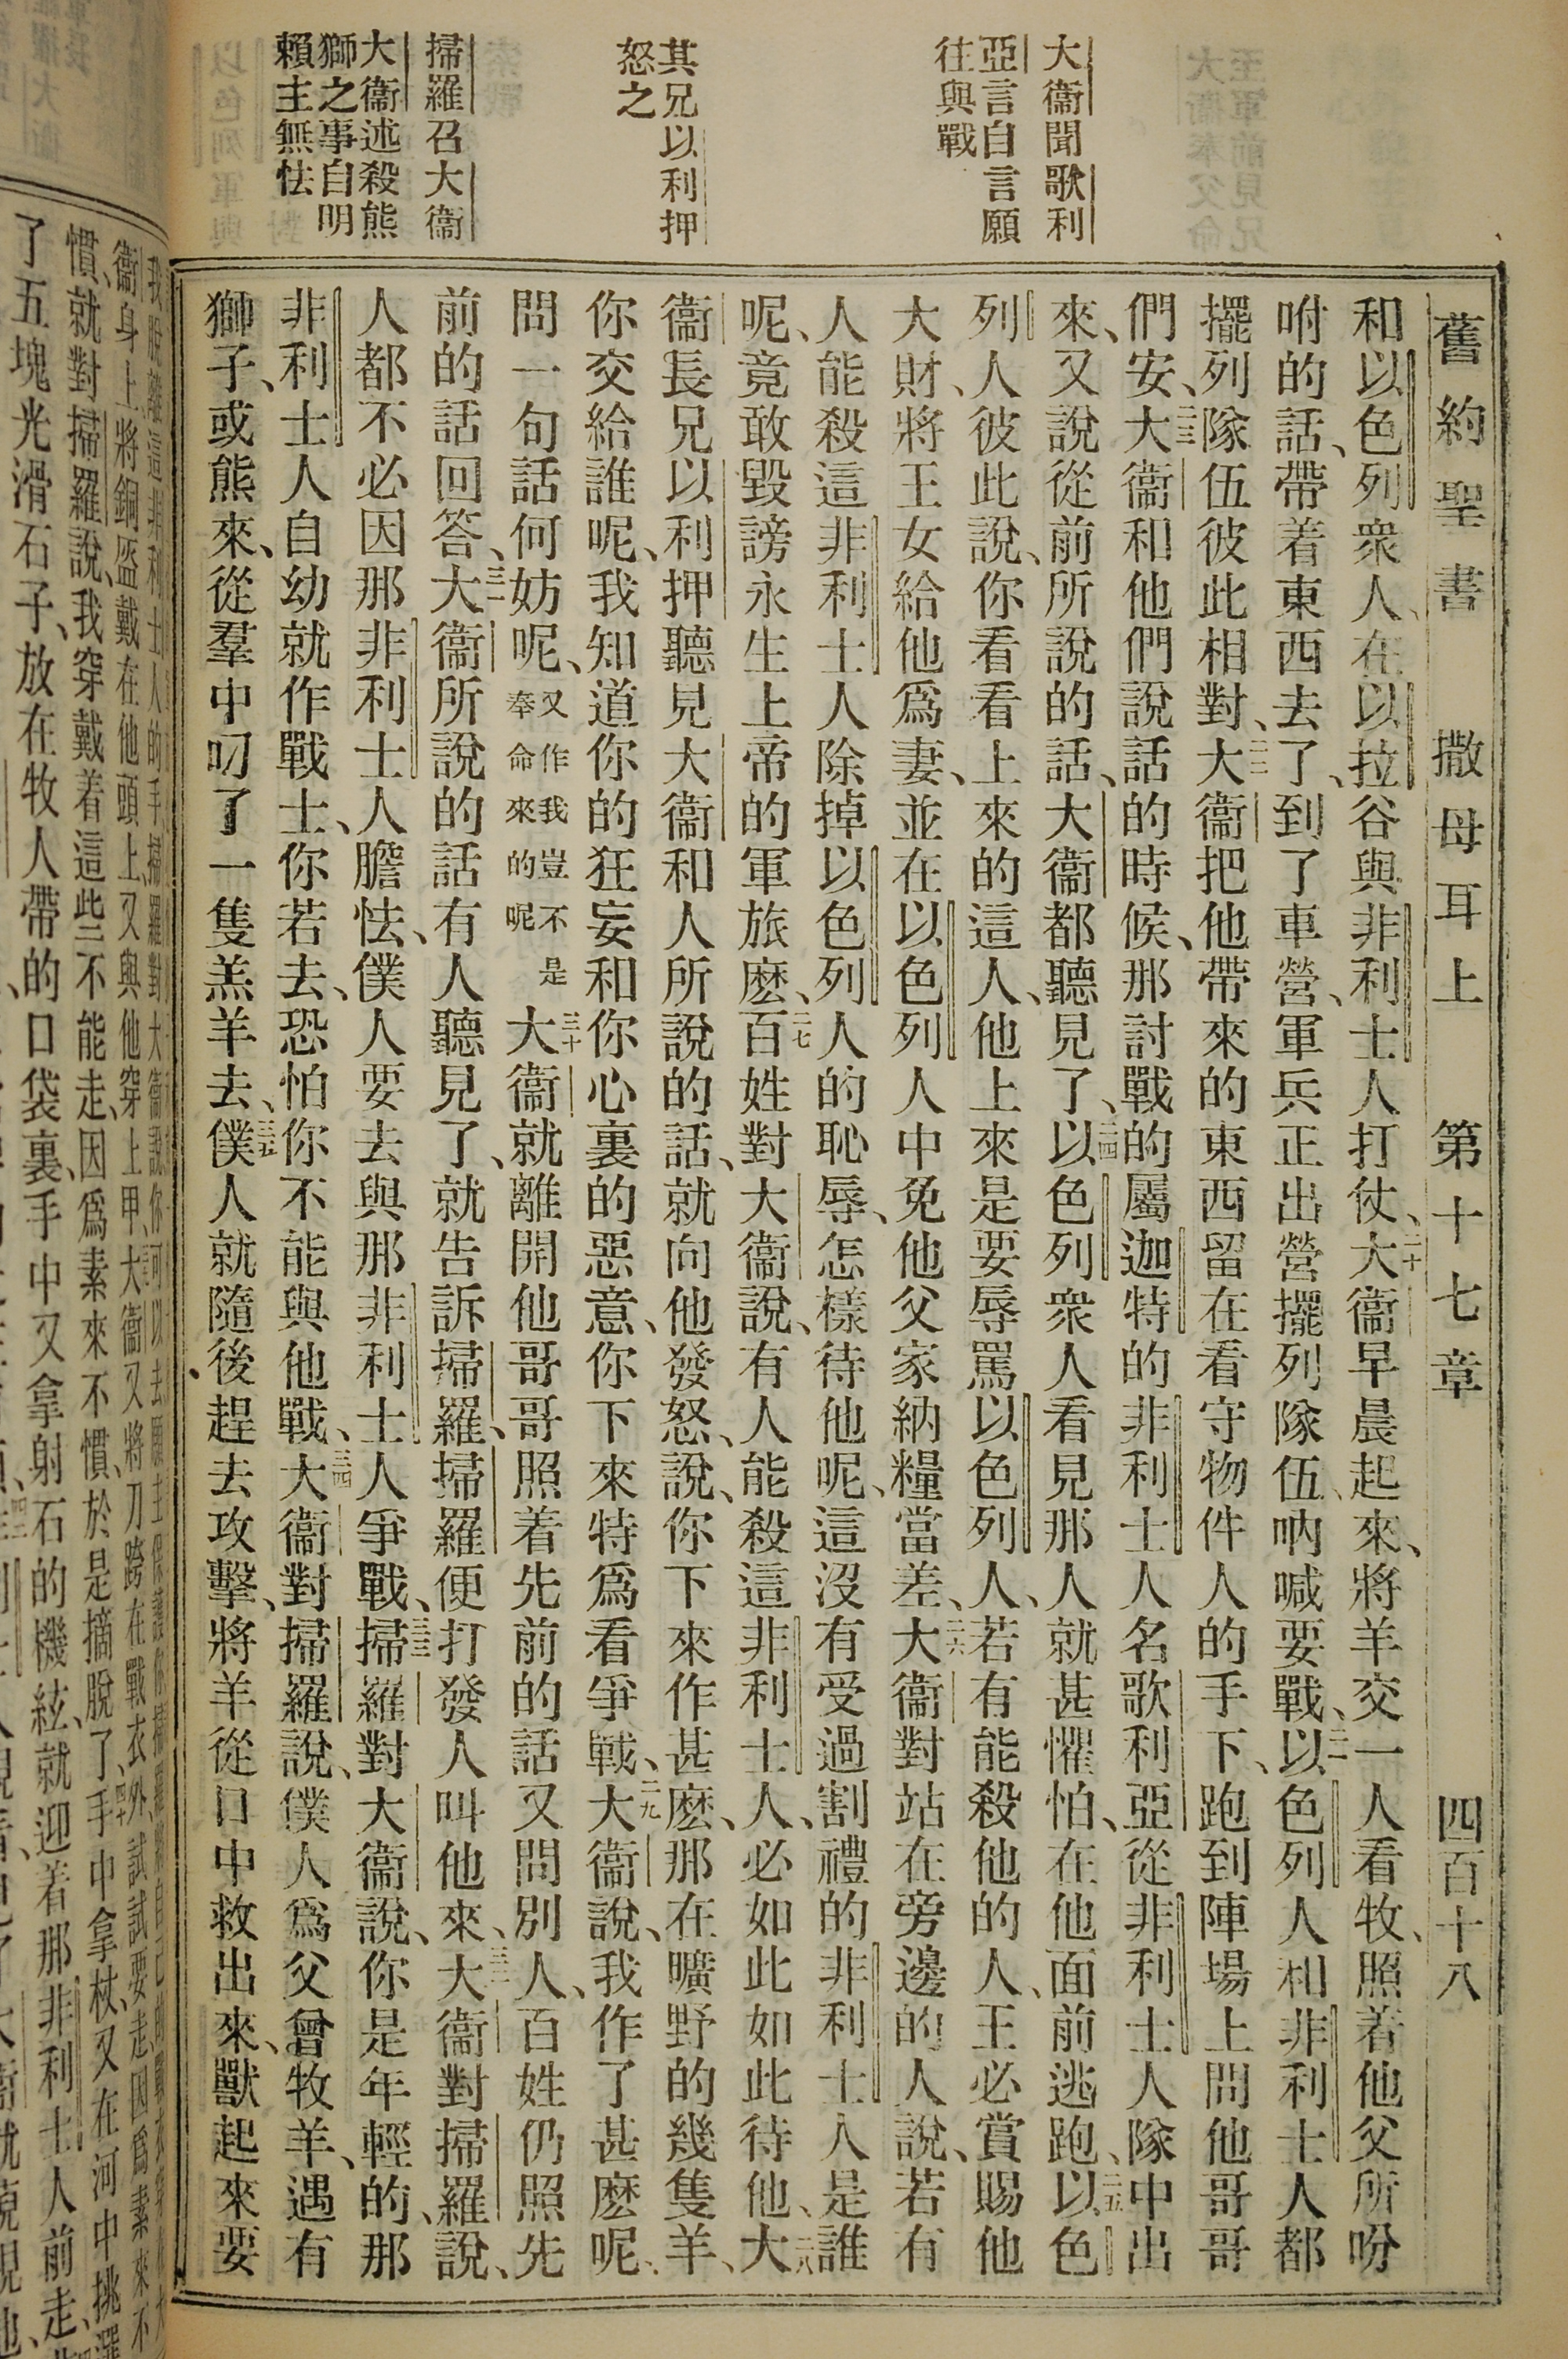 大衞聞歌利
亞言自言願
往與戰
其兄以利押
怒之
掃羅召大衞
大衞述殺熊
獅之事自明
賴主無怯
舊約聖書 撒母耳上 第十七章 四百十八
和以色列衆人、在以拉谷與非利士人打仗、二十大衞早晨起來、將羊交一人看牧、照着他父所吩
咐的話、帶着東西去了、到了車營、軍兵正出營擺列隊伍、吶喊要戰、二一以色列人和非利士人都
擺列隊伍彼此相對、二二大衞把他帶來的東西留在看守物件人的手下、跑到陣場上問他哥哥
們安、二三大衞和他們說話的時候、那討戰的屬迦特的非利士人名歌利亞從非利士人隊中出
來、又說從前所說的話、大衞都聽見了、二四以色列衆人看見那人就甚懼怕、在他面前逃跑、二五以色
列人彼此說、你看看上來的這人、他上來是要辱罵以色列人、若有能殺他的人、王必賞賜他
大財、將王女給他爲妻、並在以色列人中免他父家納糧當差、二六大衞對站在旁邊的人說、若有
人能殺這非利士人除掉以色列人的恥辱、怎樣待他呢、這沒有受過割禮的非利士人是誰
呢、竟敢毀謗永生上帝的軍旅麽、二七百姓對大衞說、有人能殺這非利士人、必如此如此待他、二八大
衞長兄以利押聽見大衞和人所說的話、就向他發怒、說、你下來作甚麽、那在曠野的幾隻羊、
你交給誰呢、我知道你的狂妄和你心裏的惡意、你下來特爲看爭戰、二九大衞說、我作了甚麽呢、
問一句話何妨呢、又作我豈不是奉命來的呢三十大衞就離開他哥哥照着先前的話又問別人、百姓仍照先
前的話回答、三一大衞所說的話有人聽見了、就告訴掃羅、掃羅便打發人叫他來、三二大衞對掃羅說、
人都不必因那非利士人膽怯、僕人要去與那非利士人爭戰、三三掃羅對大衞說、你是年輕的、那
非利士人自幼就作戰士、你若去、恐怕你不能與他戰、三四大衞對掃羅說、僕人爲父曾牧羊、遇有
獅子、或熊來、從羣中叼了一隻羔羊去、三五僕人就隨後趕去攻擊、將羊從口中救出來、獸起來要